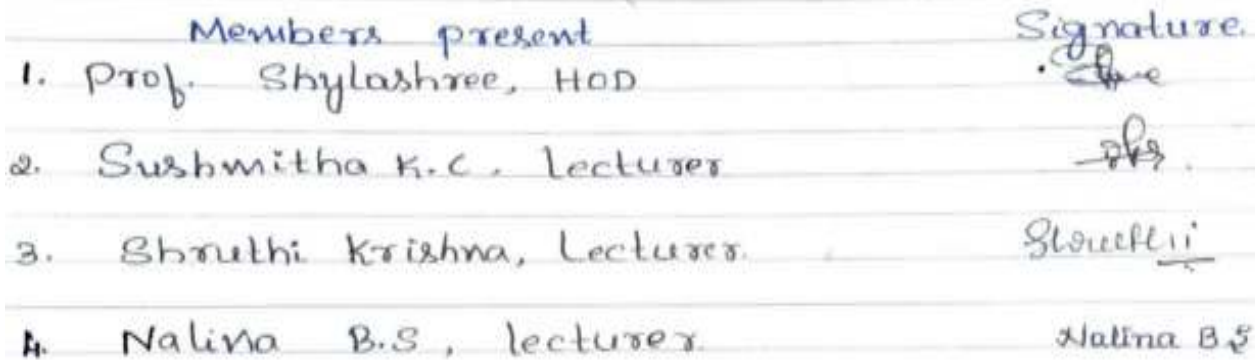 Members present Signature.
1. Prof. Shylashree, HOD
2. Sushmitha K.C. lecturer
3. Shruthi Krishna, Lecturer. Shruthi
4. Nalina B.S, lecturer. Nalina B S